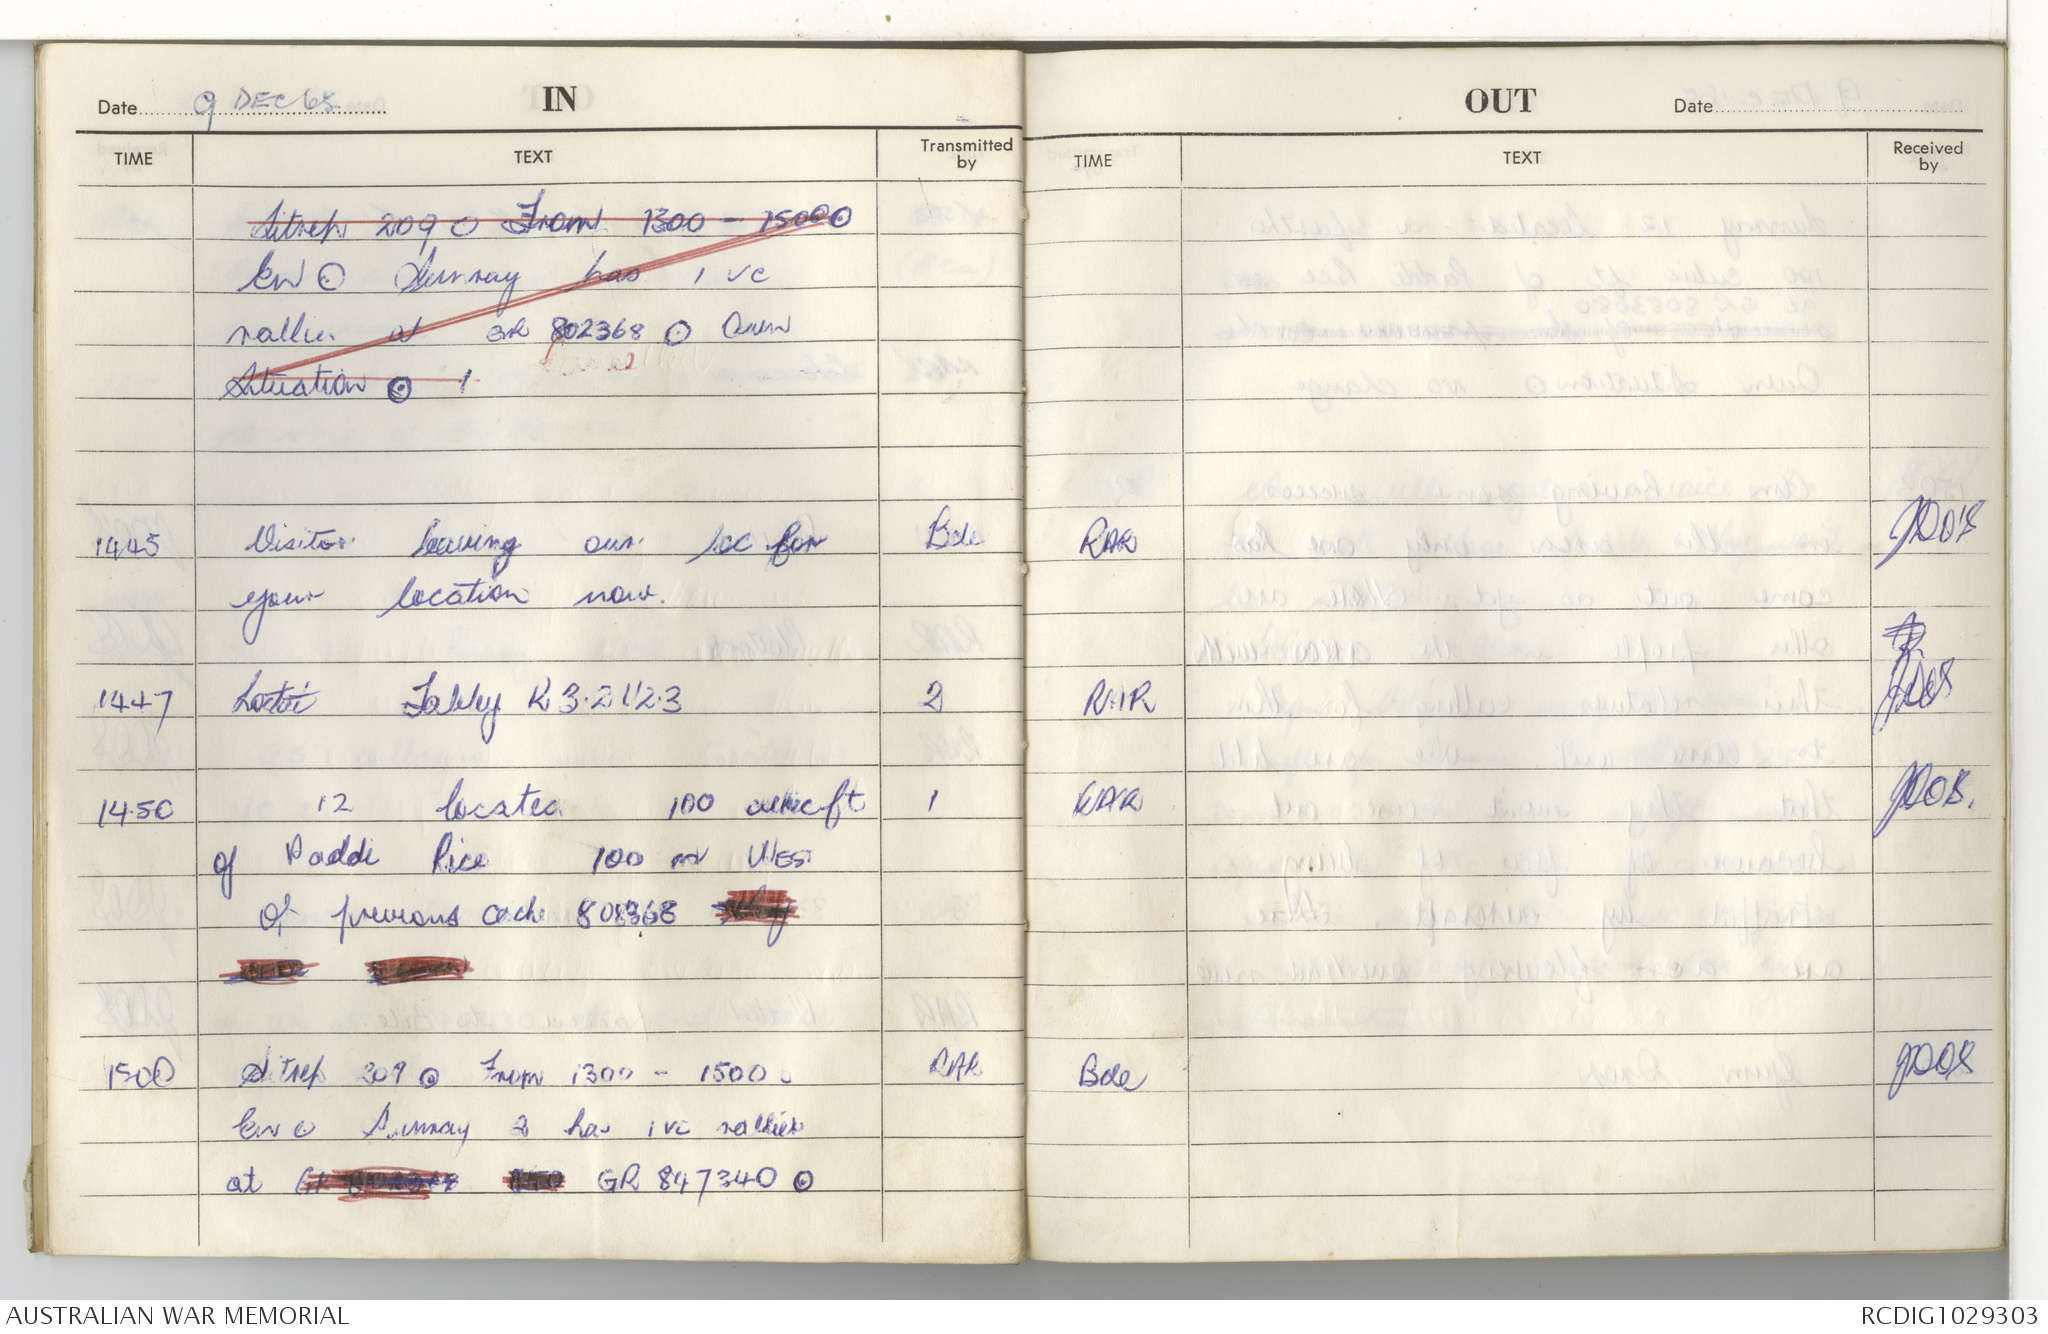 Date 9 DEC 65 IN
TIME TEXT Transmitted by
Sitrep 209 O From 1300 - 1500 O
En O Sunray has 1 VC
rallier at GR 802368 O Own
Situation O 1
1445 Visitor leaving our loc for Bde
your location now.
1447 Locstat Tolley R 3.2 1/2.3 2
1450 12 located 100 cubic ft 1
of Paddi Rice 100 m WEST
of previous cache 808368
1500 Sitrep 209 O From 1300 - 1500 O RAR
En O Sunray 2 has 1 VC rallier
at GR 847340 O
OUT Date
TIME TEXT Received by
RAR JDOS
RAR JDOS
RAR JDOS.
Bde JDOS
AUSTRALIAN WAR MEMORIAL
RCDIG1029303